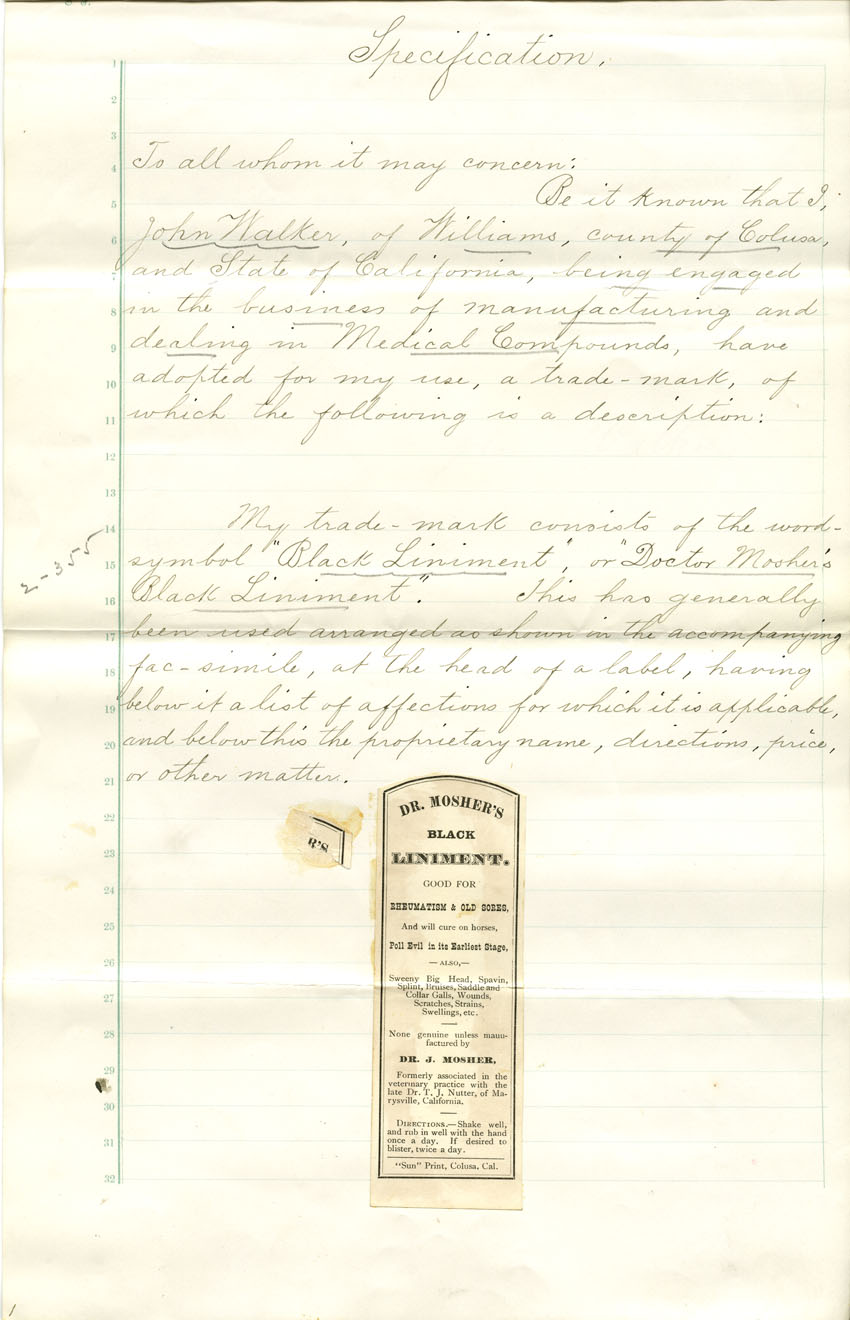 Specification.
To all whom it may concern:
Be it known that I,
John Walker, of Williams, county of Colusa,
and State of California, being engaged
in the business of manufacturing and
dealing in Medical Compounds, have
adopted for my use, a trade-mark, of
which the following is a description:
My trade-mark consists of the word-
symbol "Black Liniment", or "Doctor Mosher's
Black Liniment". This has generally
been used arranged as shown in the accompanying
fac-simile, at the head of a label, having
below it a list of affections for which it is applicable,
and below this the proprietary name, directions, price,
or other matter.
2-355
R'S
DR. MOSHER'S
BLACK
LINIMENT.
GOOD FOR
RHEUMATISM & OLD SORES,
And will cure on horses,
Poll Evil in its Earliest Stage,
—ALSO,—
Sweeny Big Head, Spavin,
Splint, Bruises, Saddle and
Collar Galls, Wounds,
Scratches, Strains,
Swellings, etc.
None genuine unless manu-
factured by
DR. J. MOSHER,
Formerly associated in the
veterinary practice with the
late Dr. T. J. Nutter, of Ma-
rysville, California.
DIRECTIONS.—Shake well,
and rub in well with the hand
once a day. If desired to
blister, twice a day.
"Sun" Print, Colusa, Cal.
1
2
3
4
5
6
7
8
9
10
11
12
13
14
15
16
17
18
19
20
21
22
23
24
25
26
27
28
29
30
31
32
1